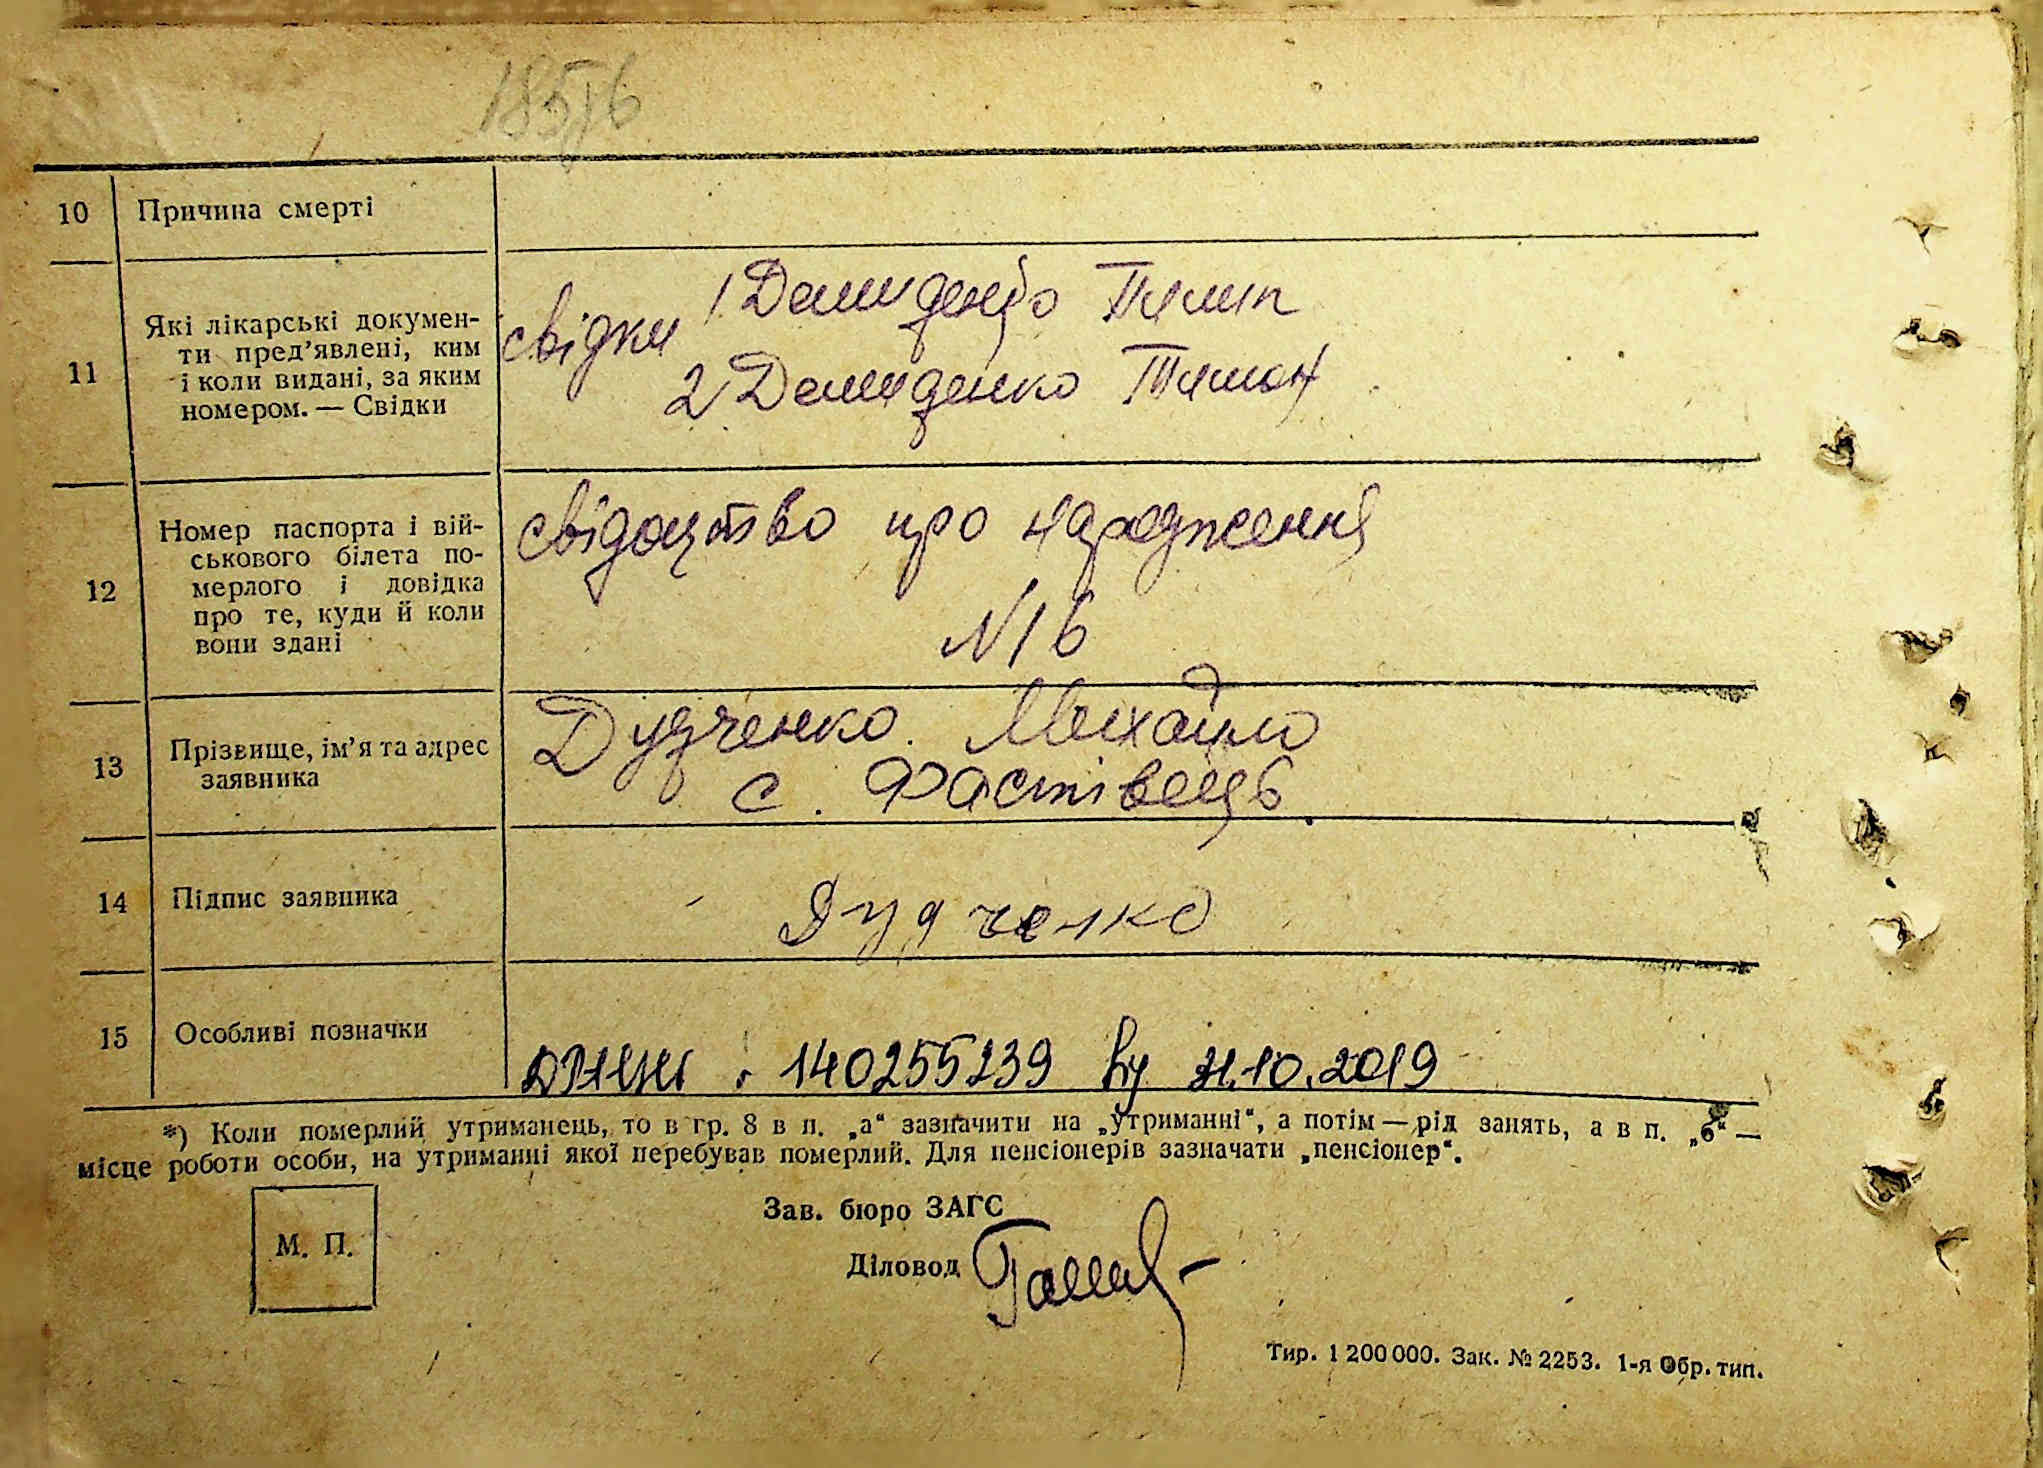 185/6
10 Причина смерті
11 Які лікарські докумен-
ти пред’явлені, ким
і коли видані, за яким
номером. — Свідки
свідки 1 Демиденко Пилип
2 Демиденко Тимон
12 Номер паспорта і вій-
ськового білета по-
мерлого і довідка
про те, куди й коли
вони здані
свідоцтво про народження
N 16
13 Прізвище, ім’я та адрес
заявника
Дудченко Михайло
с. Фастівець
14 Підпис заявника
Дудченко
15 Особливі позначки
140255239 31.10.2019
*) Коли померлий утриманець, то в гр. 8 в п. „а“ зазначити на „утриманні“, а потім — рід занять, а в п. „б“ —
місце роботи особи, на утриманні якої перебував померлий. Для пенсіонерів зазначати „пенсіонер“.
М. П.
Зав. бюро ЗАГС
Діловод
Тир. 1 200 000. Зак. № 2253. 1-я Обр. тип.